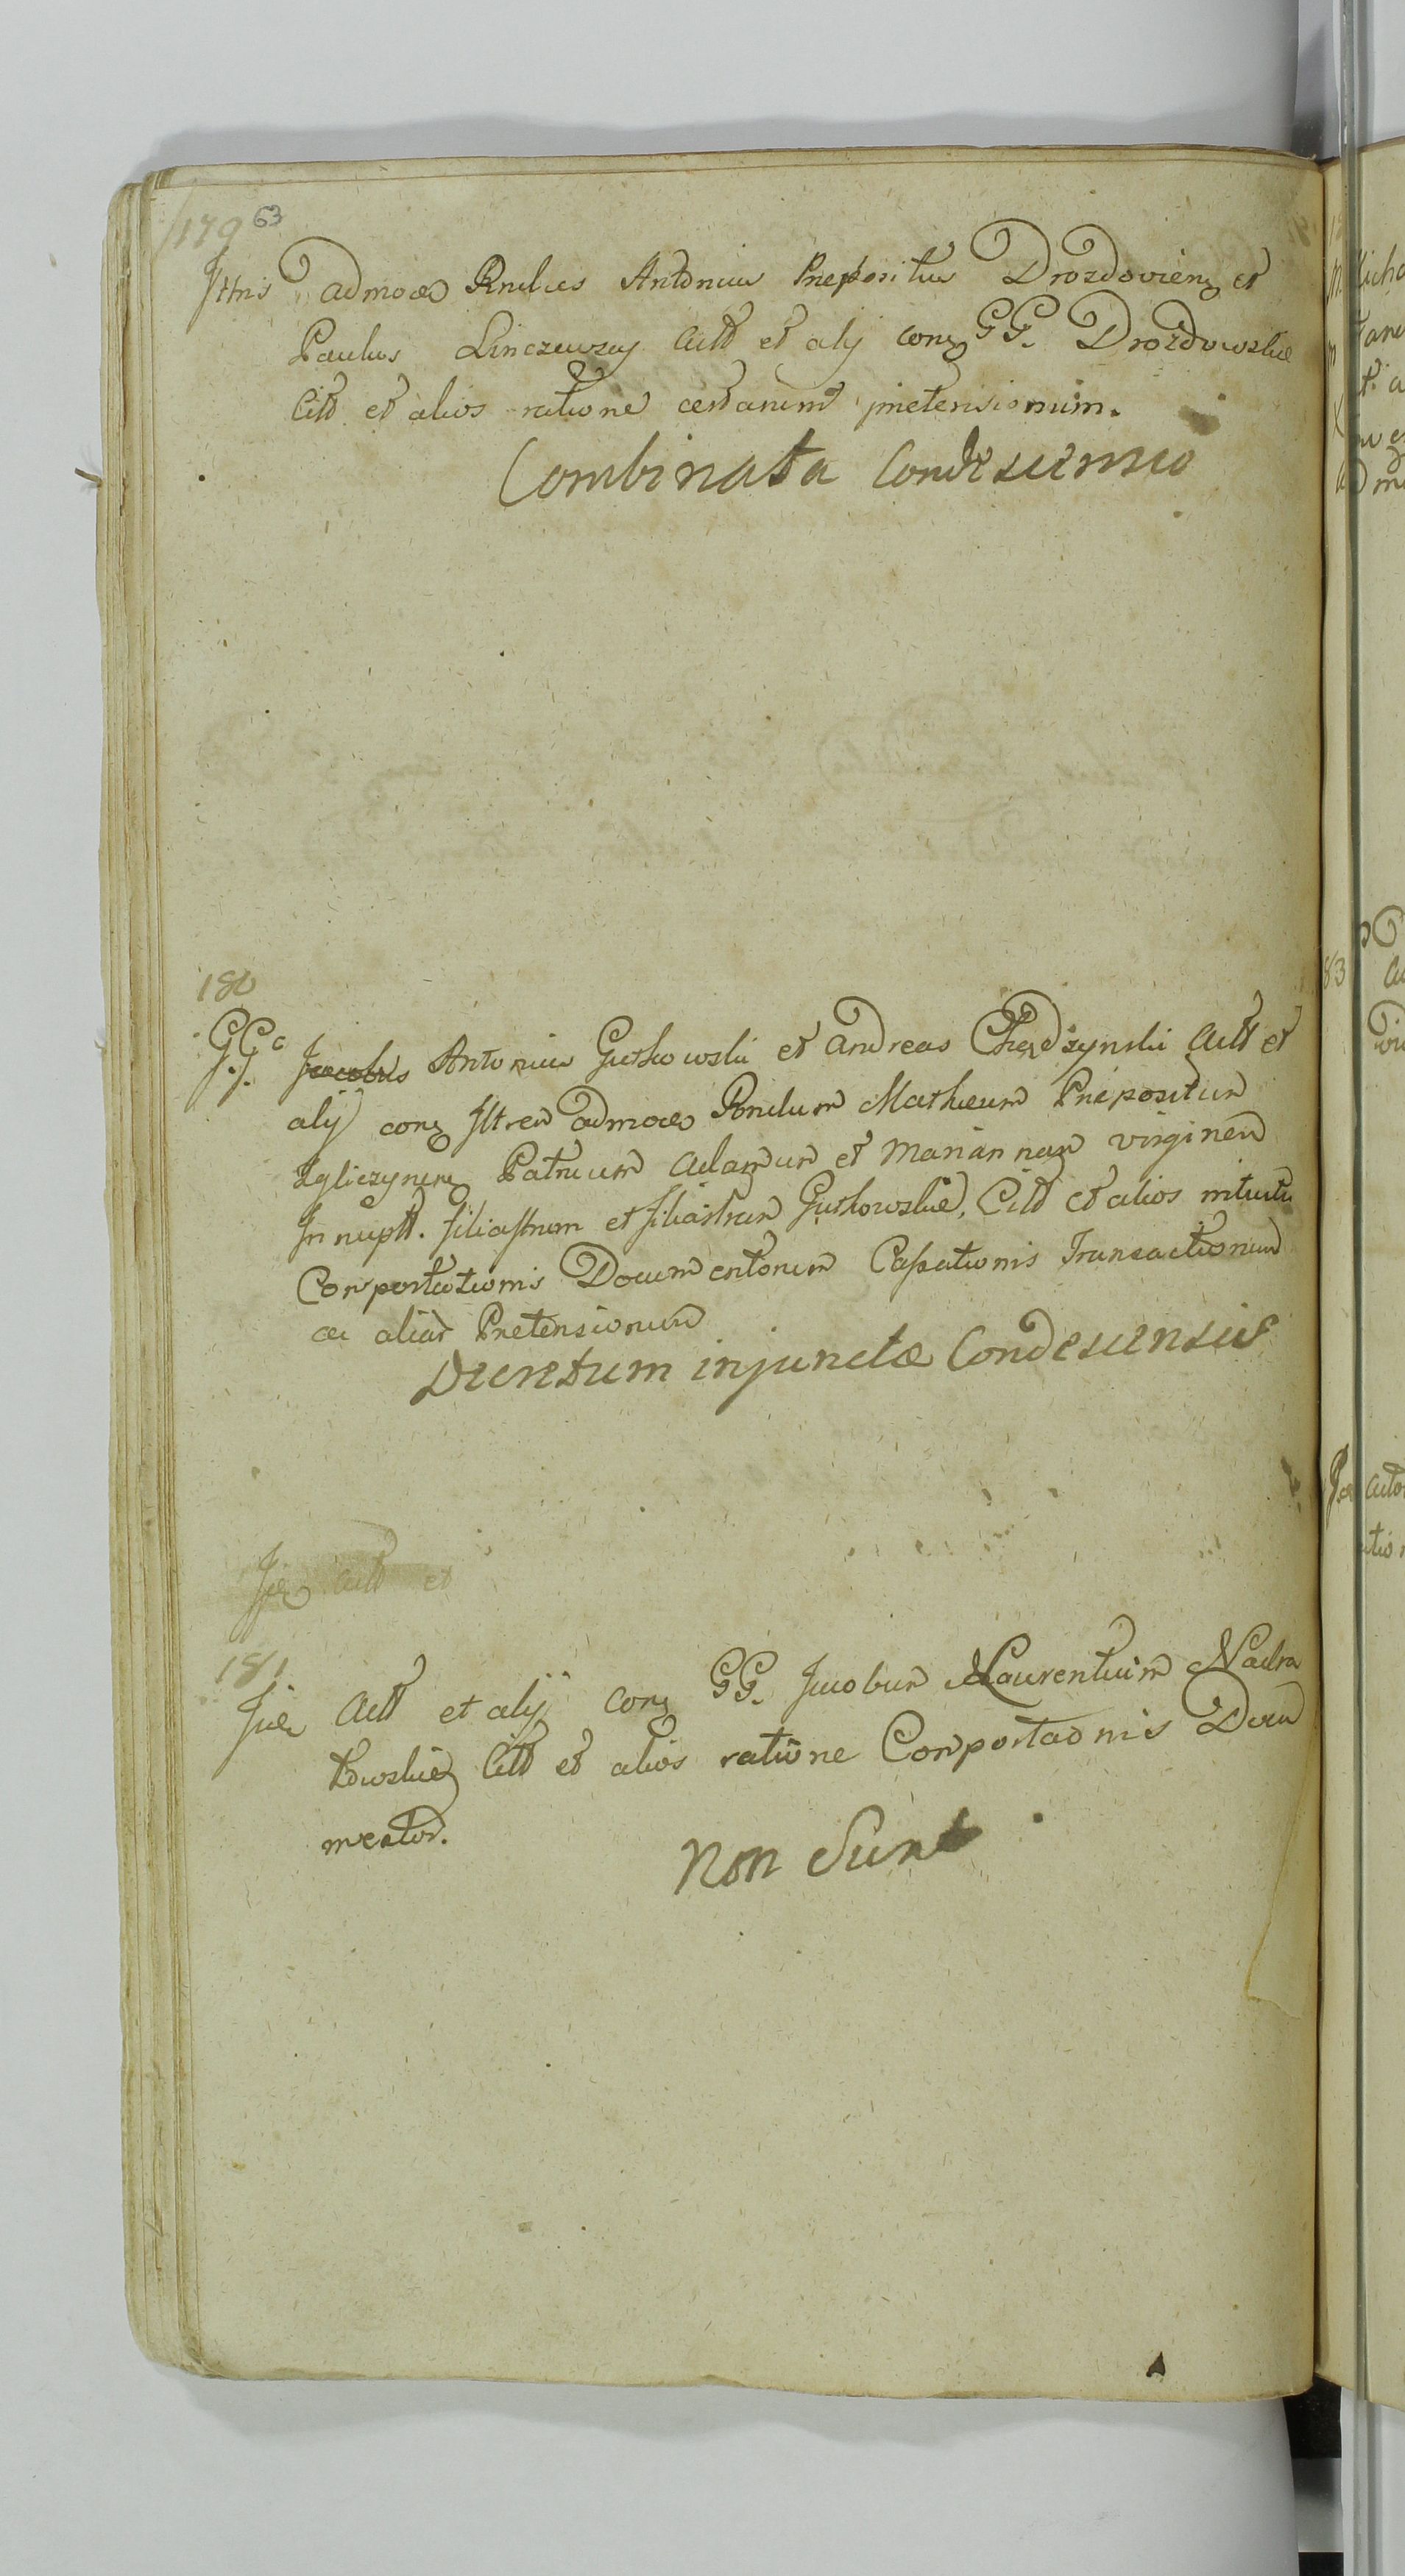 179 63
Jttris admodū Rndus Antonius Prepositus Drozdovien et
Paulus Linczewscy Actt et alij con GG. Drozdowskie
Citt et alios ratione certarum pretensionum.
Combinata Condescensio
180
GG. Jacobus Antonius Gutkowski et Andreas Chądzynski Actt et
alij con Jttrem admodū Rndum Matheum Prepositum
Igliczynen Patruum Adamum et Mariannam virginem
Innupt. filiastrum et filiastram Gutkowskie, Citt et alios intuitu
Comportationis Documentorum Cassationis Transactionum
ac aliar Pretensionum
Decretum injunctæ Condescensiæ
Actt et
181
Actt et alij con GG. Jacobum Laurentium Nadra
towskie Citt et alios ratione Comportaonis Docu
mentor.
Non Sunt